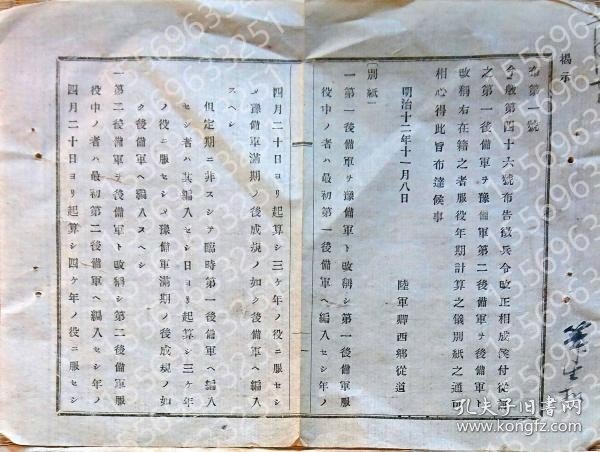 掲示
布第一號
今般第四十六號布告徵兵令改正相成候付從前
之第一後備軍ヲ豫備軍第二後備軍ヲ後備軍ト
改稱右在籍之者服役年期計算之儀別紙之通可
相心得此旨布達候事
明治十二年十一月八日
陸軍卿西鄕從道
〔別紙〕
一第一後備軍ヲ豫備軍ト改稱シ第一後備軍服
役中ノ者ハ最初第一後備軍ヘ編入セシ年ノ
四月二十日ヨリ起算シ三ケ年ノ役ニ服セシ
メ豫備軍滿期ノ後成規ノ如ク後備軍ヘ編入
スヘシ
但定期ニ非スシテ臨時第一後備軍ヘ編入
セシ者ハ其編入セシ日ヨリ起算シ三ケ年
ノ役ニ服セシメ豫備軍滿期ノ後成規ノ如
ク後備軍ヘ編入スヘシ
一第二後備軍ヲ後備軍ト改稱シ第二後備軍服
役中ノ者ハ最初第二後備軍ヘ編入セシ年ノ
四月二十日ヨリ起算シ四ケ年ノ役ニ服セシ
孔夫子旧书网
www.kongfz.com